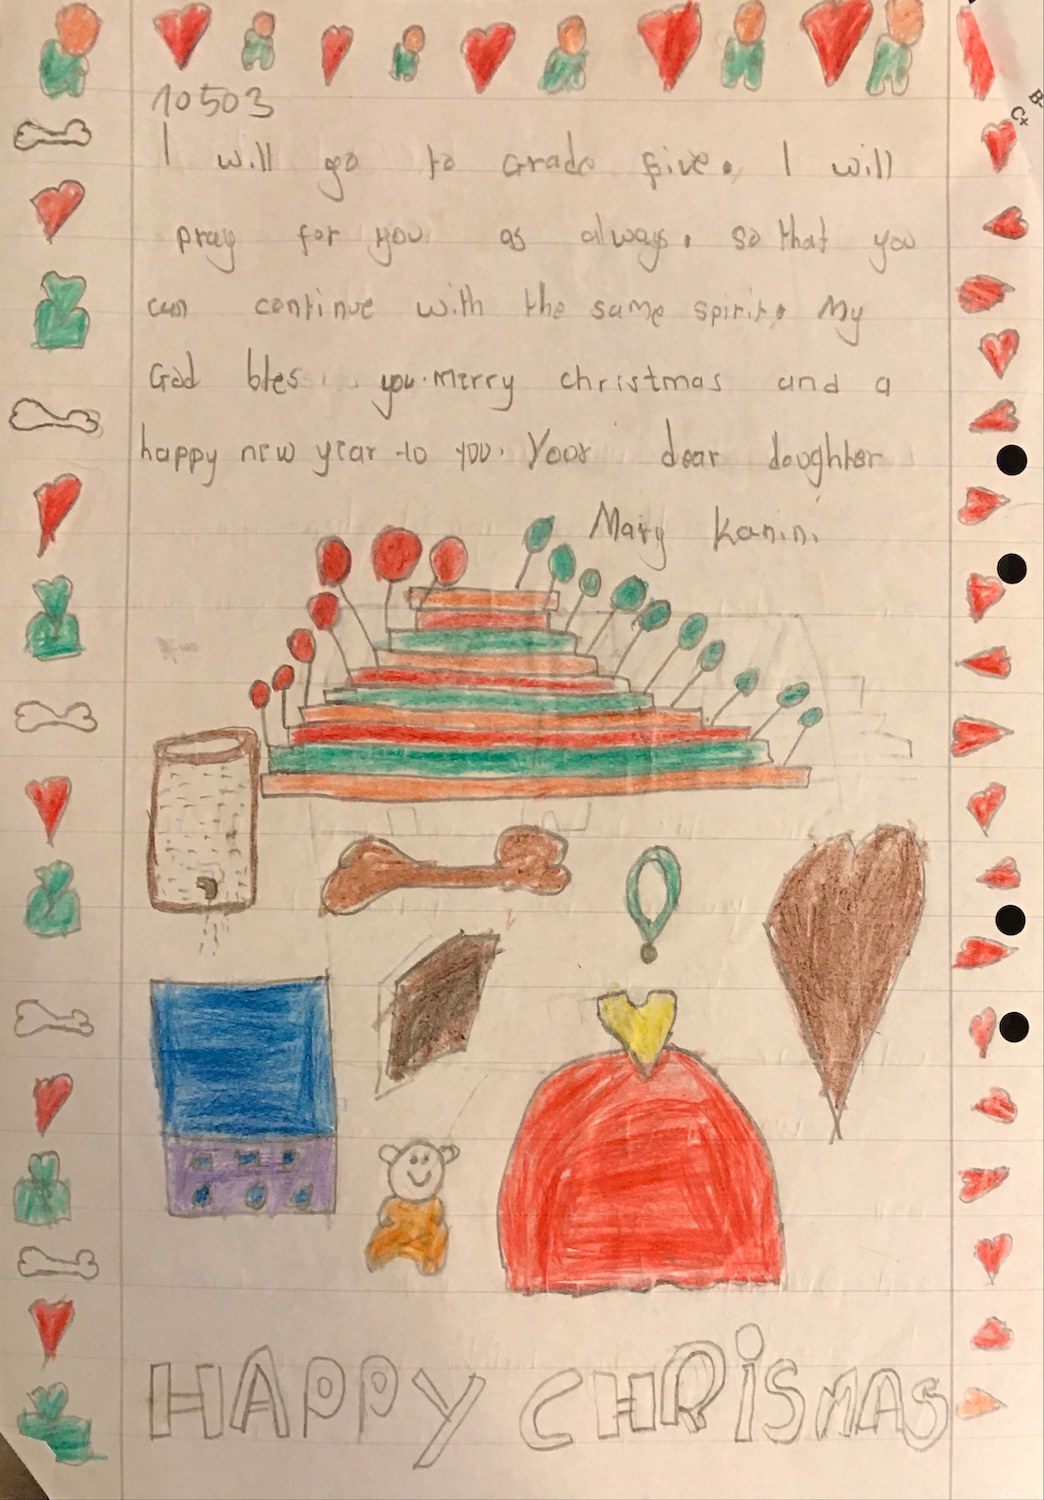 10503
I will go to Grade five. I will
pray for you as always, so that you
can continue with the same spirit. My
God bles you. Merry christmas and a
happy new year to you. Your dear doughter
Mary Kanini
C+
B-
HAPPY CHRISMAS